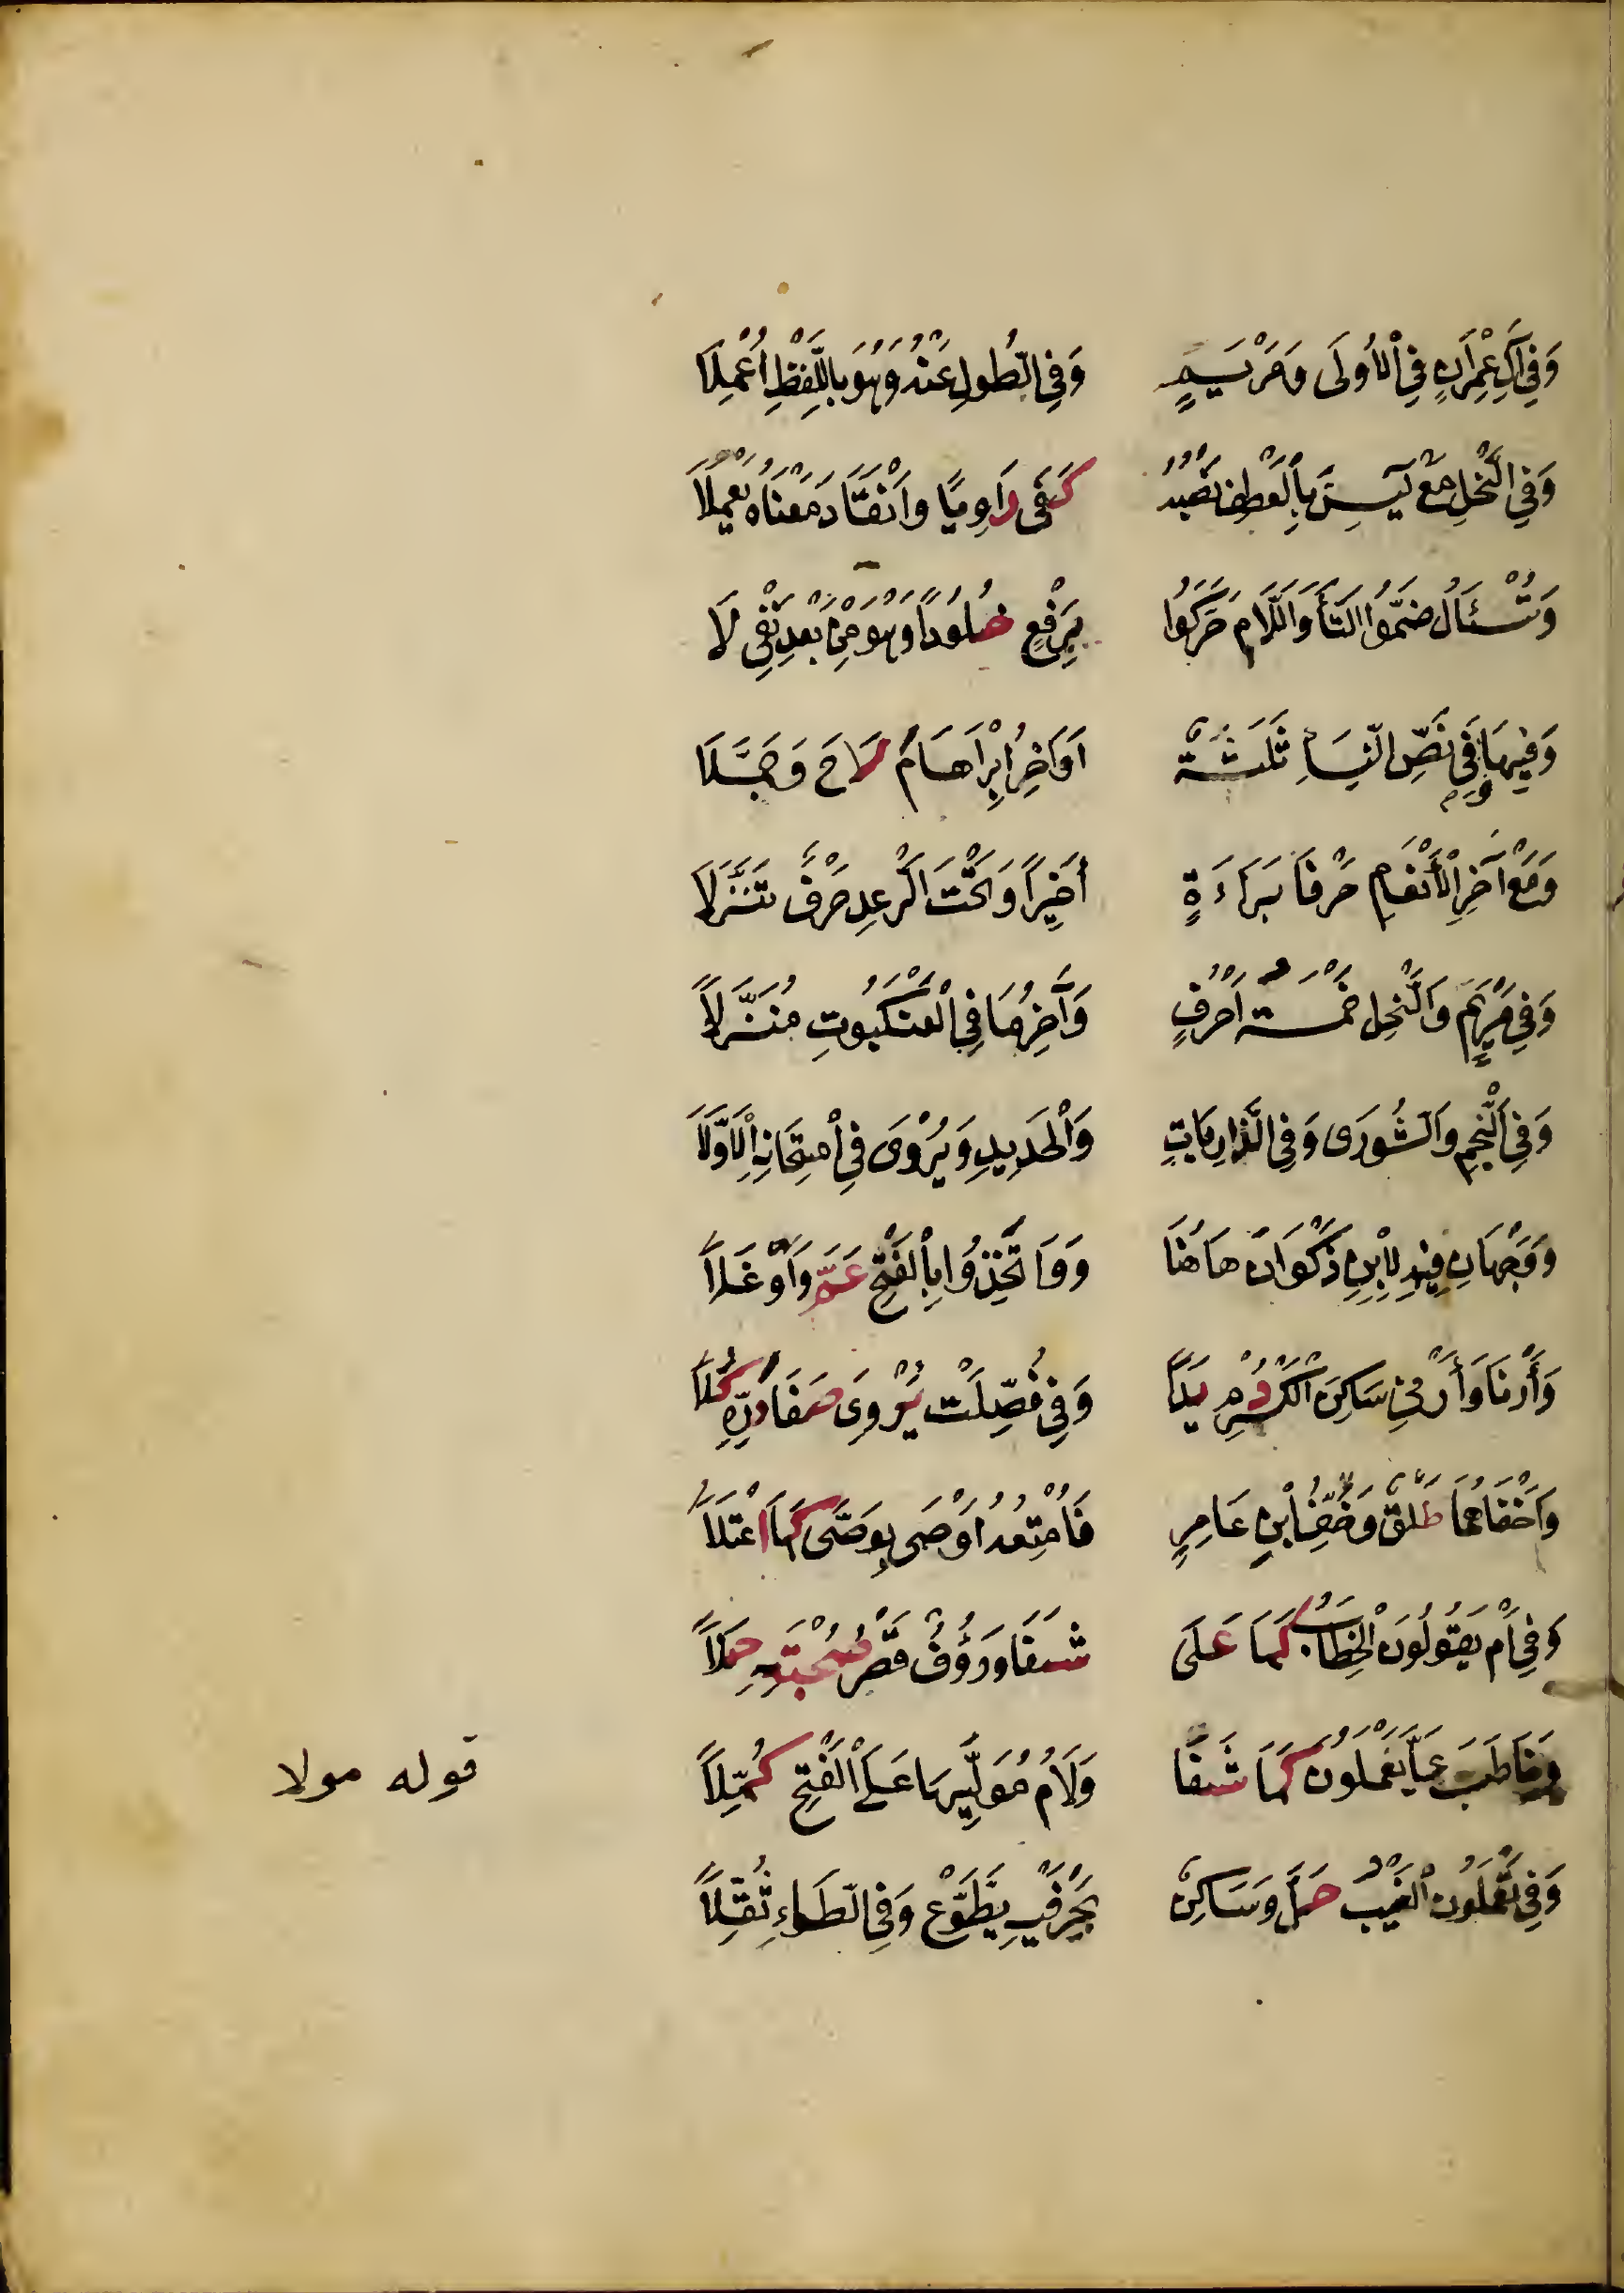 وَفِي آلِ عِمْرَانٍ فِي الْاُولَى وَمَرْيَمٍ وَفِي الطُّولِ عَنْهُ وَهُوَ بِاللَّفْظِ اُعْمِلَا
وَفِي النَّحْلِ مَعْ يٰسِينَ بِالْعَطْفِ نَصْبُهُ كَفَى رَاوِيًا وَانْقَادَ مَعْنَاهُ يَعْمِلَا
وَتُسْئَالُ ضَمُّوا التَّاَ وَاللَّامَ حَرَّكُوا بِرَفْعٍ خُلُودًا وَهُوَ مِنْ بَعْدِ نَفْيِ لَا
وَفِيهَا وَفِي نَصِّ النِّسَاءِ ثَلٰثَةٌ اَوَاخِرُ اِبْرَاهَامَ لَاحَ وَجَمَّلَا
وَمَعْ آخِرِ الْأَنْعَامِ حَرْفَا بَرَاءَةٍ أَخِيرًا وَتَحْتَ الرَّعْدِ حَرْفٌ تَنَزَّلَا
وَفِي مَرْيَمٍ وَالنَّحْلِ خَمْسَةُ اَحْرُفٍ وَآخِرُ مَا فِي الْعَنْكَبُوتِ مُنَزَّلاً
وَفِي النَّجْمِ وَالشُّورَى وَفِي الذَّارِيَاتِ وَالْحَدِيدِ وَيُرْوَى فِي امْتِحَانِهِ الْاَوَّلَا
وَوَجْهَانِ فِيهِ لِابْنِ ذَكْوَانَ هَاهُنَا وَوَاتَّخِذُوا بِالْفَتْحِ عَمَّ وَاَوْغَلَا
وَأَرْنَا وَأَرْنِي سَاكِنَ الْكَسْرِ دُمْ يَدًا وَفِي فُصِّلَتْ يُرْوِى صَفَا دَرِّهِ كُلَا
وَاَخْفَاهُمَا طَلْقٌ وَخِفُّ ابْنِ عَامِرٍ فَاُمْتِعُهُ اَوْصَى بِوَصَّى كَمَا اعْتَلَا
وَفِي اَمْ يَقُولُونَ الْخِطَابُ كَمَا عَلَى شَفَا وَرَؤُفٌ قَصْرُ صُحْبَتِهِ حَلَا
وَخَاطَبَ عَمَّا يَعْمَلُونَ كَمَا شَفَا وَلَامُ مُوَلِّيهَا عَلَى الْفَتْحِ كُمِّلَا
قوله مولا
وَفِي يَعْمَلُونَ الْغَيْبُ حَلَّ وَسَاكِنٌ بِحَرْفَيْهِ يَطَّوَّعْ وَفِي الطَّاءِ ثُقِّلَا